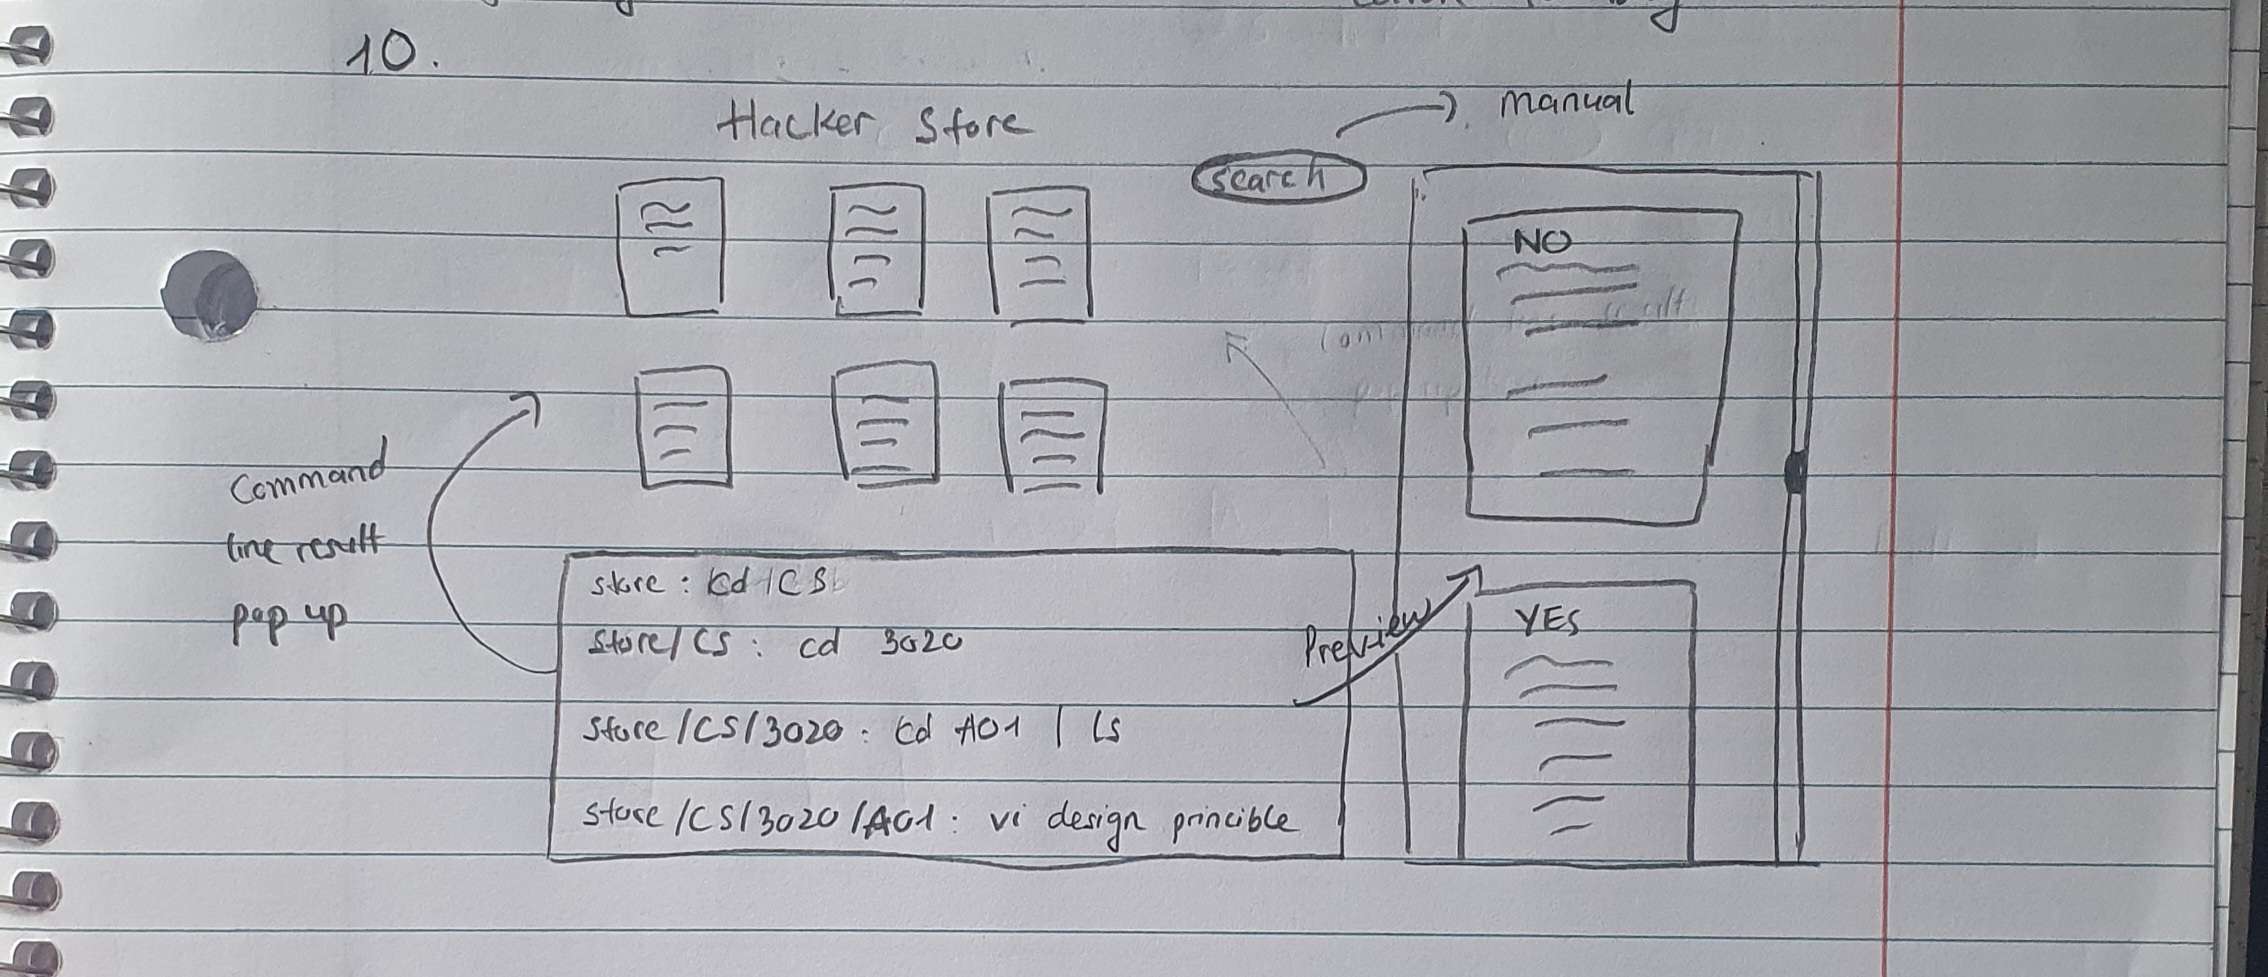 10.
Hacker Store
search
manual
NO
Command
line result
pop up
store : cd /CS
Store/CS : cd 3020
Preview
YES
Store /CS/3020 : cd A01 | ls
Store /CS/3020/A01 : vi design princible